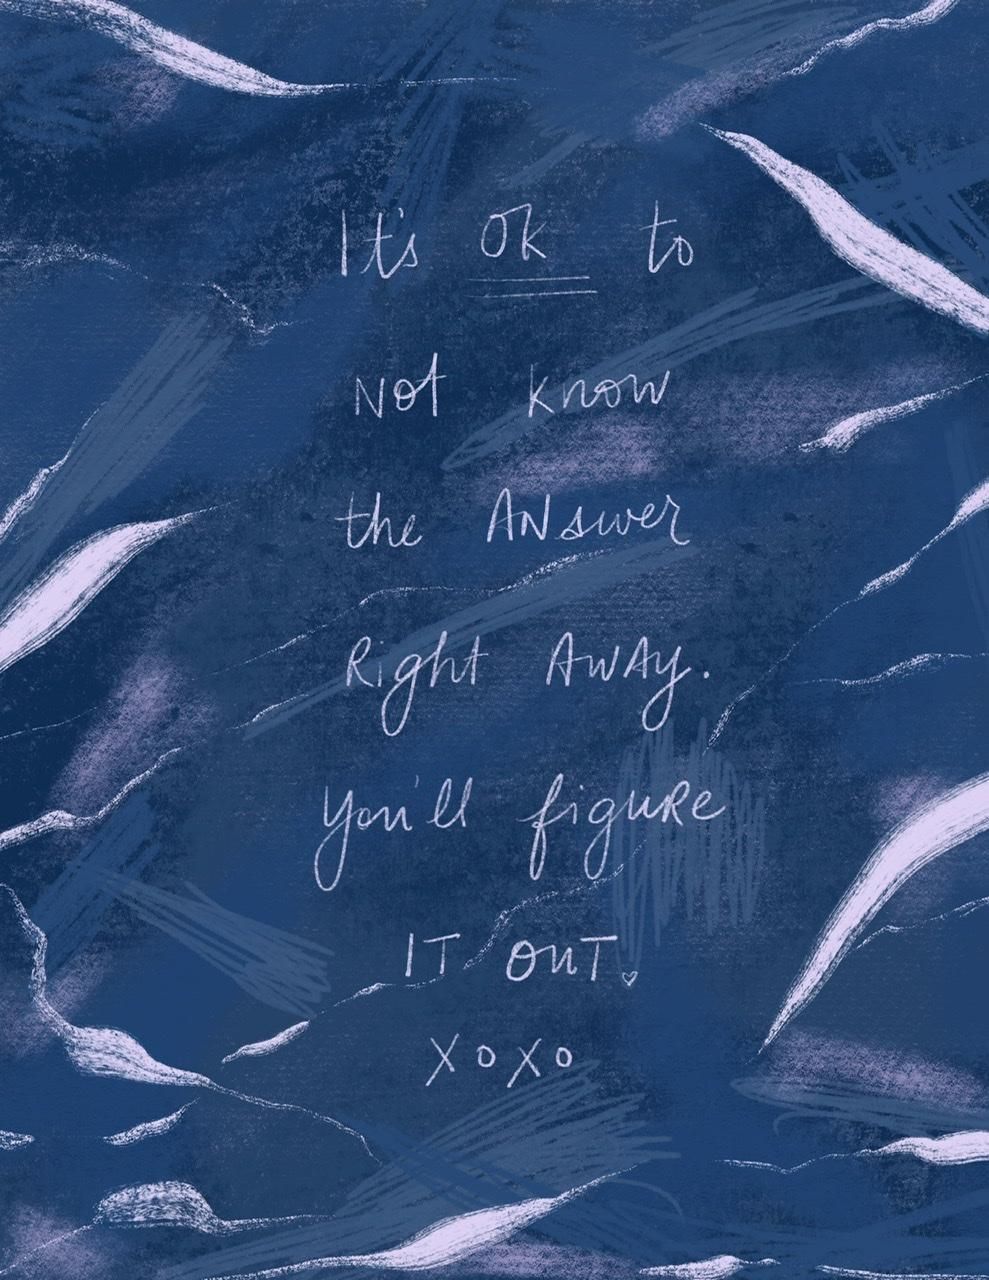 It's OK to
Not know
the ANswer
Right AWAY.
you'll figuRe
IT OuT.
XoXo